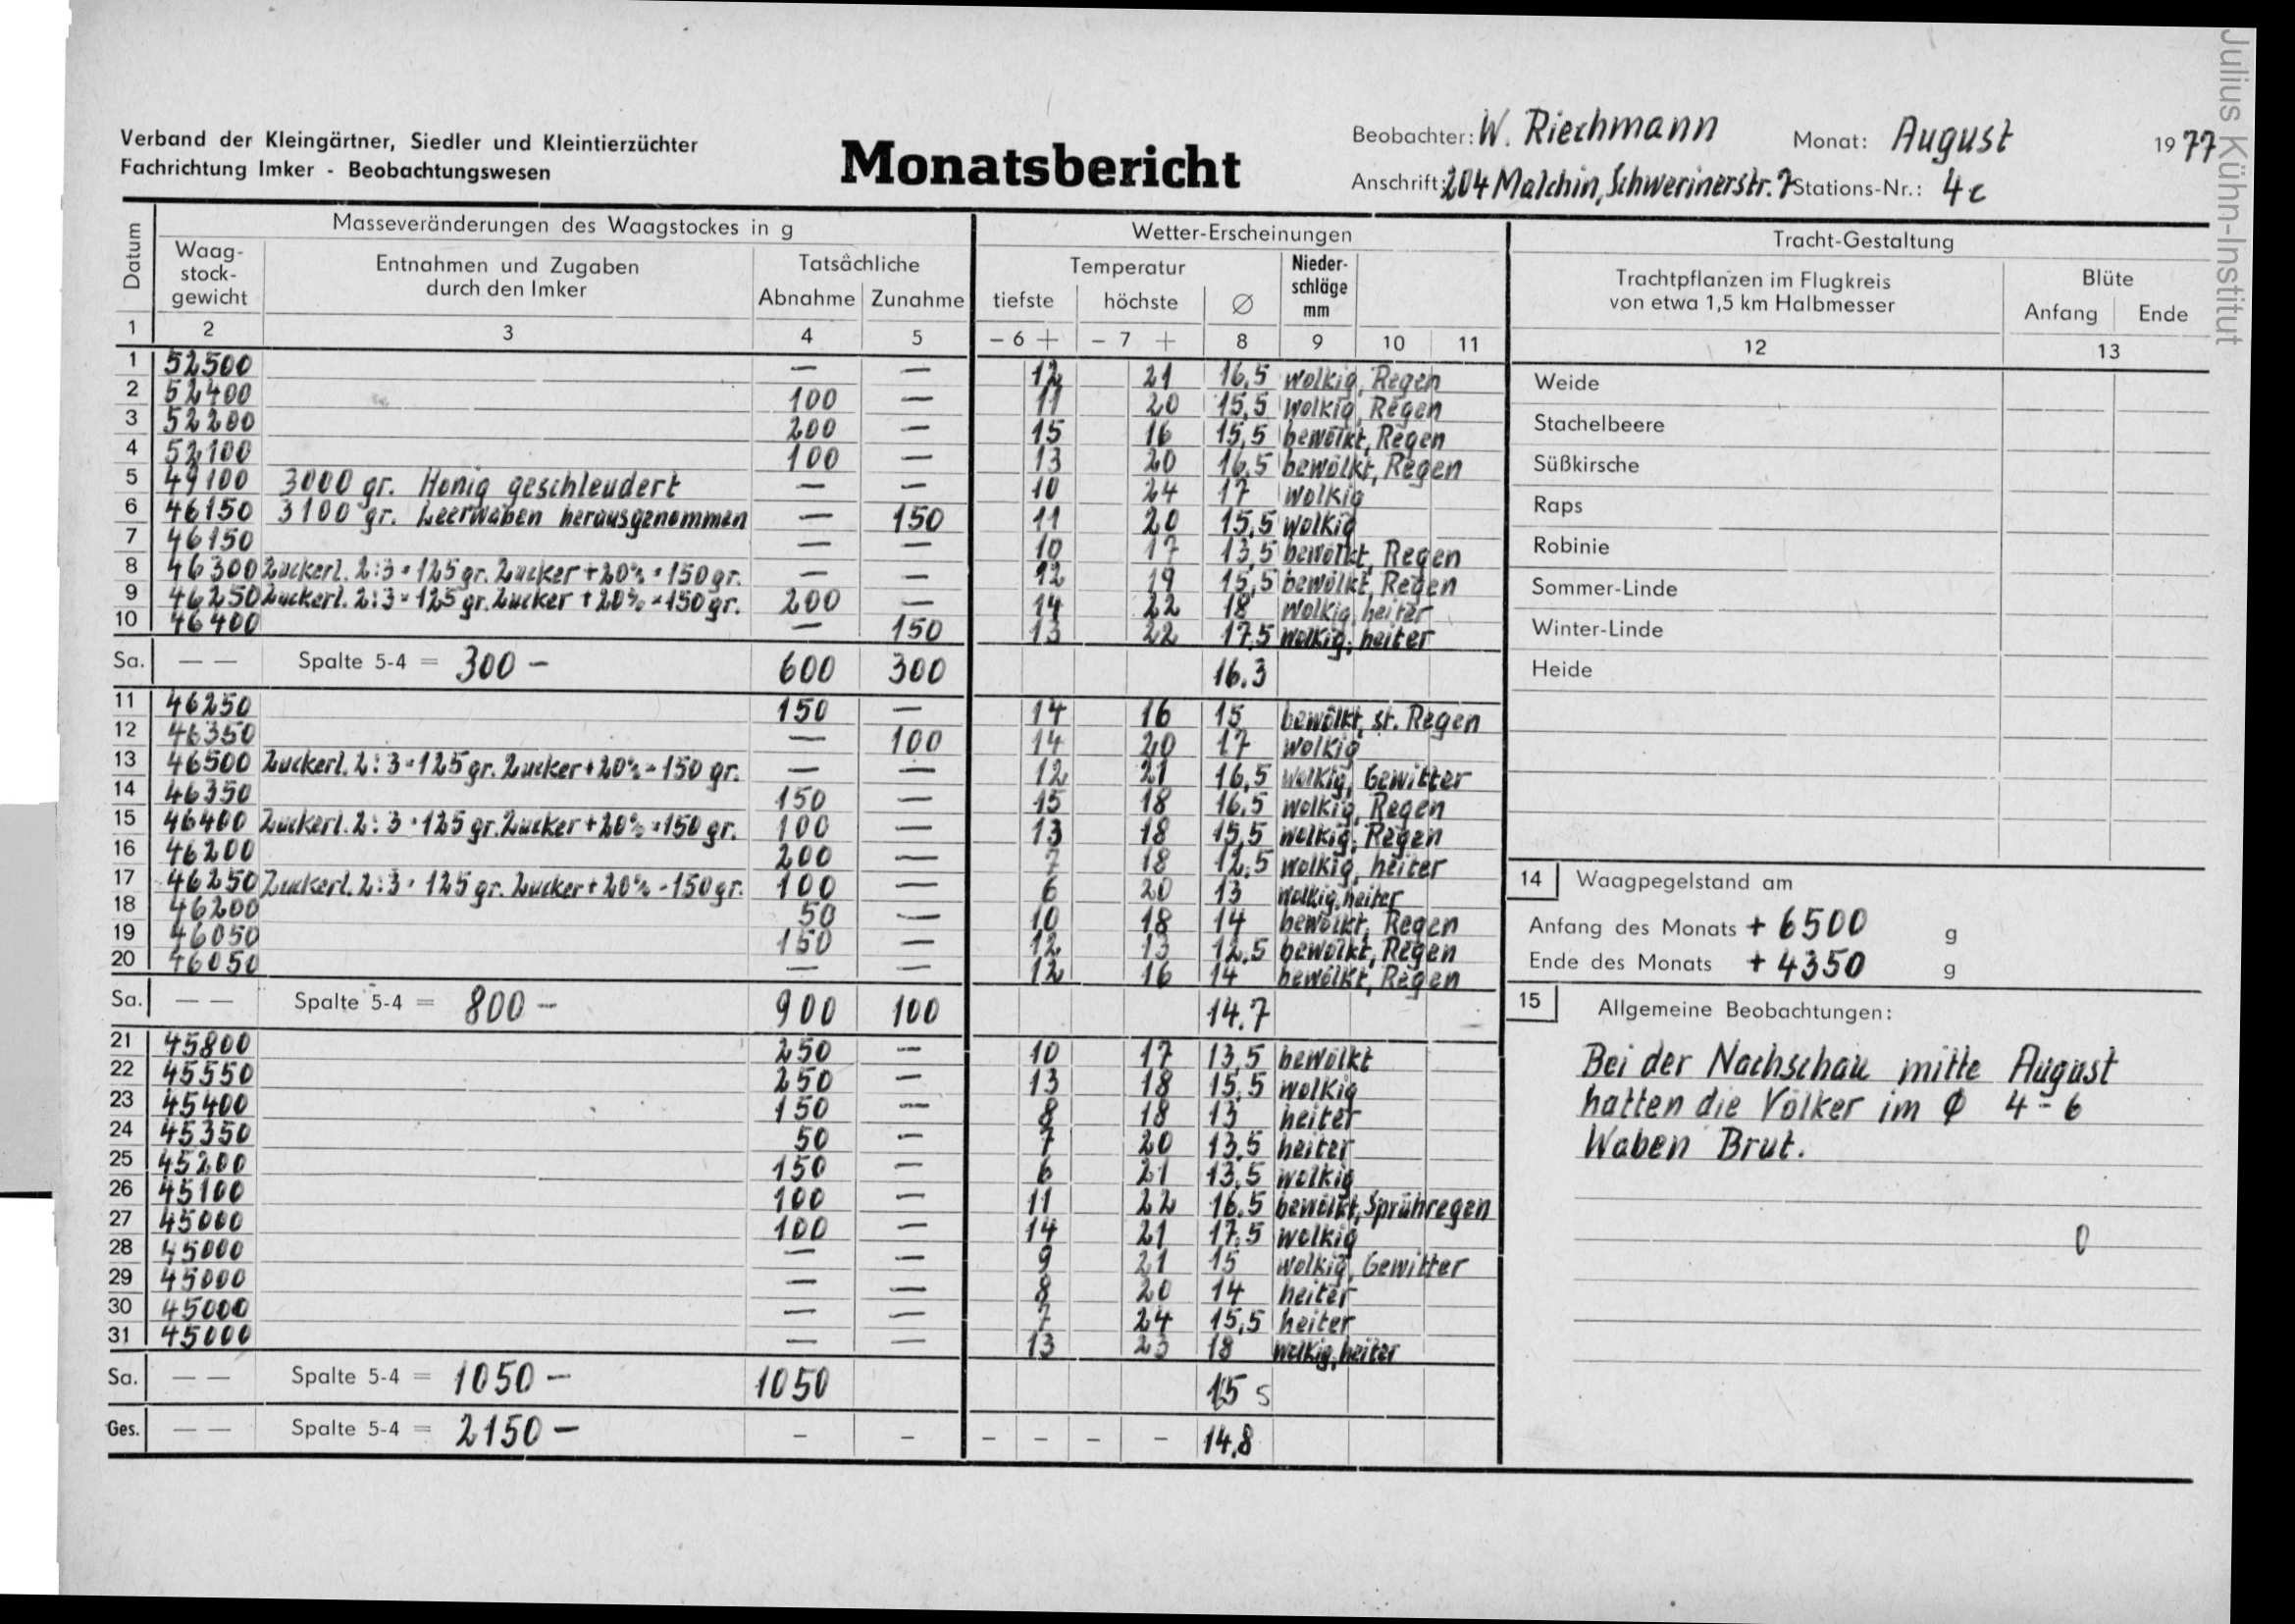 Verband der Kleingärtner, Siedler und Kleintierzüchter
Fachrichtung Imker - Beobachtungswesen
Monatsbericht
Beobachter: W. Riechmann Monat: August 1977
Anschrift: 204 Malchin, Schwerinerstr. 7 Stations-Nr.: 4c
Julius Kühn-Institut
Datum Masseveränderungen des Waagstockes in g Wetter-Erscheinungen Tracht-Gestaltung
Waag-stock-gewicht Entnahmen und Zugaben durch den Imker Tatsächliche Abnahme Zunahme Temperatur tiefste höchste Ø Nieder-schläge mm Trachtpflanzen im Flugkreis von etwa 1,5 km Halbmesser Blüte Anfang Ende
1 2 3 4 5 - 6 + - 7 + 8 9 10 11 12 13
1 52500 — — 12 21 16,5 wolkig, Regen
2 52400 100 — 11 20 15,5 wolkig, Regen
3 52200 200 — 15 16 15,5 bewölkt, Regen
4 52100 100 — 13 20 16,5 bewölkt, Regen
5 49100 3000 gr. Honig geschleudert — — 10 24 17 wolkig
6 46150 3100 gr. Leerwaben herausgenommen — 150 11 20 15,5 wolkig
7 46150 — — 10 17 13,5 bewölkt, Regen
8 46300 Zuckerl. 2:3 = 125 gr. Zucker + 20% = 150 gr. — — 12 19 15,5 bewölkt, Regen
9 46250 Zuckerl. 2:3 = 125 gr. Zucker + 20% = 150 gr. 200 — 14 22 18 wolkig, heiter
10 46400 — 150 13 22 17,5 wolkig, heiter
Sa. — — Spalte 5-4 = 300 - 600 300 16.3
11 46250 150 — 14 16 15 bewölkt, st. Regen
12 46350 — 100 14 20 17 wolkig
13 46500 Zuckerl. 2:3 = 125 gr. Zucker + 20% = 150 gr. — — 12 21 16,5 wolkig, Gewitter
14 46350 150 — 15 18 16,5 wolkig, Regen
15 46400 Zuckerl. 2:3 = 125 gr. Zucker + 20% = 150 gr. 100 — 13 18 15,5 wolkig, Regen
16 46200 200 — 7 18 12,5 wolkig, heiter
17 46250 Zuckerl. 2:3 = 125 gr. Zucker + 20% = 150 gr. 100 — 6 20 13 wolkig, heiter
18 46200 50 — 10 18 14 bewölkt, Regen
19 46050 150 — 12 13 12,5 bewölkt, Regen
20 46050 — — 12 16 14 bewölkt, Regen
Sa. — — Spalte 5-4 = 800 - 900 100 14.7
21 45800 250 — 10 17 13,5 bewölkt
22 45550 250 — 13 18 15,5 wolkig
23 45400 150 — 8 18 13 heiter
24 45350 50 — 7 20 13,5 heiter
25 45200 150 — 6 21 13,5 wolkig
26 45100 100 — 11 22 16,5 bewölkt, Sprühregen
27 45000 100 — 14 21 17,5 wolkig
28 45000 — — 9 21 15 wolkig, Gewitter
29 45000 — — 8 20 14 heiter
30 45000 — — 7 24 15,5 heiter
31 45000 — — 13 23 18 wolkig, heiter
Sa. — — Spalte 5-4 = 1050 - 1050 15 s
Ges. — — Spalte 5-4 = 2150 - - - - - - - 14,8
Weide
Stachelbeere
Süßkirsche
Raps
Robinie
Sommer-Linde
Winter-Linde
Heide
14 Waagpegelstand am
Anfang des Monats + 6500 g
Ende des Monats + 4350 g
15 Allgemeine Beobachtungen:
Bei der Nachschau mitte August
hatten die Völker im Ø 4-6
Waben Brut.
0